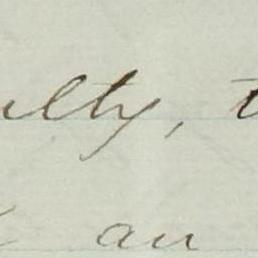 ulty, t
an